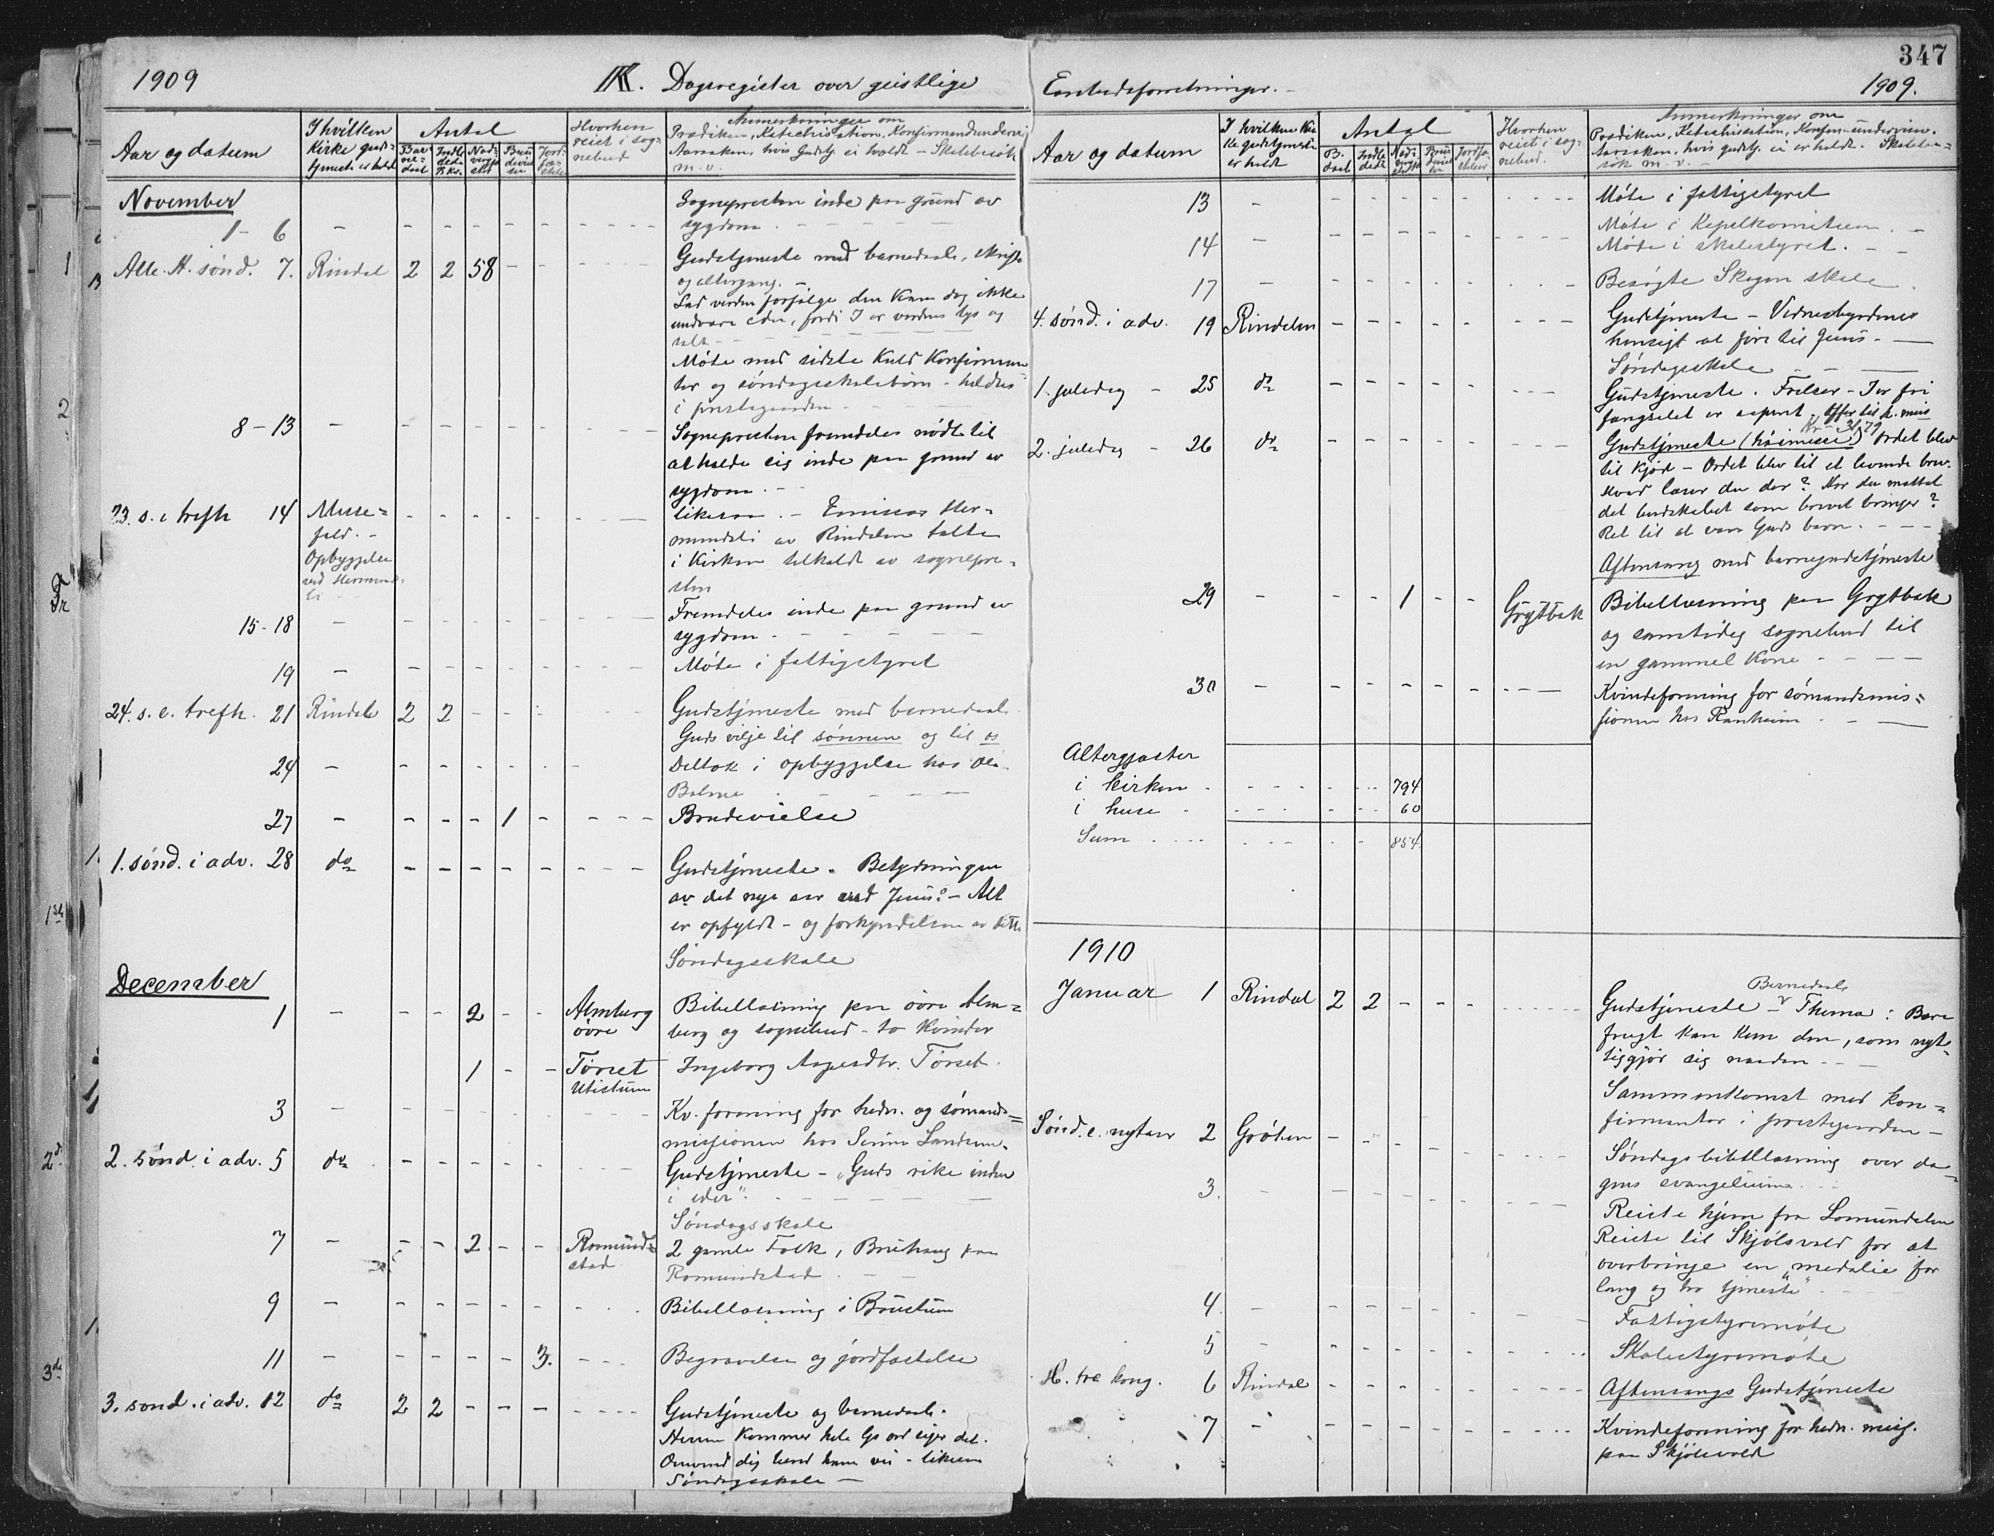 347
1909
IX. Dagsregister over geistlige
Embedsforretninger.
1909.
Aar og datum
I hvilken
Kirke guds-
tjeneste er holdt
Antal
Hvorhen
reist i sog-
nebud
Anmerkninger om
Prædiken, Katechisation, Konfirmandunderv.
Aarsaken, hvis gudstj. ei holdt. - Skolebesøk
m.v.
November
1-6
Sognepresten inde paa grund av
sygdom.
Alle H. sønd. 7. Rindal 2 2 58
Gudstjeneste med barnedaab, skrifte
og altergang. -
Lad verden forfølge den kan dog ikke
undvære eder, fordi I er verdens lys og
salt
Møte med sidste kuld konfirman-
ter og søndagsskolebørn - holdtes
i prestegaarden
8-13
Sognepresten fremdeles nødt til
at holde sig inde paa grund av
sygdom. -
23. s. e. trefh. 14
Opbyggelse
ved Hermund-
li
likesaa. - Emissær Her-
mundsli av Rindalen talte
i Kirken tilkaldt av sognepre-
sten
15-18
Fremdeles inde paa grund av
sygdom.
19
Møte i fattigstyret
24. s. e. trefh. 21 Rindal 2 2
Gudstjeneste med barnedaab.
Guds vilje til sønnen og til os
24
Deltok i opbyggelse hos Ole
Bolme
27 1
Brudevielse
1. sønd. i adv. 28 do
Gudstjeneste. Betydningen
av det nye aar ved Jesus: - Alt
er opfyldt - og forkyndelsen av dette
Søndagsskole
December
1 2 Almberg
øvre
Bibellæsning paa øvre Alm-
berg og sognebud - to kvinder
1 Tørset
Utistuen
Ingeborg Aagesdtr. Tørset.
3
Kv. forening for hedn. og sømands-
missionen hos
2. sønd. i adv. 5 do
Gudstjeneste - "Guds rike inden
i eder".
Søndagsskole
7 2 Romund-
stad
2 gamle Folk, paa
Romundstad
9
Bibellæsning i
11 3.
Begravelse og jordfæstelse
3. sønd. i adv. 12 do 2 2
Gudstjeneste og barnedaab.
Herren kommer hele Gs ord siger det.
Omvend dig
Søndagsskole -
Aar og datum
I hvilken Kir-
ke gudstjeneste
er holdt
Antal
Hvorhen
reist i sog-
nebud.
Anmerkninger om
Prædiken, Katechisation, Konfirm.-undervisn.
Aarsaken, hvis gudstj. ei er holdt. Skolebe-
søk m.v. -
13
Møte i fattigstyret
Møte i Kapelkomiteen.
14
Møte i skolestyret.
17
Besøgte Skogen skole
4. sønd. i adv. 19 Rindalen
Gudstjeneste - Vidnesbyrdenes
hensigt at føre til Jesus. -
Søndagsskole
1. juledag - 25 do
Gudstjeneste. Frelser - Jer fri
fangselet er aapent. Offer til h. miss
Kr. 31.79
2. juledag - 26 do
Gudstjeneste (høimesse) Ordet blev
til kjød - Ordet blev til et levende brev.
Hvad læser du der? Har du mottat
det budskabet som brevet bringer?
Ret til at være Guds barn.
Aftensang med barnegudstjeneste
29 1 Grytbak
Bibellæsning paa Grytbak
og samtidig sognebud til
en gammel kone
30
Kvindeforening for sømandsmis-
sionen hos Ranheim
Altergjæster
i kirken 794
i huse 60
Sum 854
1910
Januar 1 Rindal 2 2
Barnedaab
Gudstjeneste - Thema: Bære
frugt kan kun den, som nyt-
tiggjør sig naaden
Sammenkomst med kon-
firmanter i prestegaarden -
Sønd. e. nytaar 2 Grøten
Søndagsbibellæsning over da-
gens evangelium.
3.
Reiste hjem fra Lomundalen
Reiste til Skjølsvold for at
overbringe en "medalie for
lang og tro tjeneste"
4.
Fattigstyremøte
5
Skolestyremøte
H. tre kong. 6 Rindal
Aftensangs Gudstjeneste
7
Kvindeforening for hedn. miss.
paa Skjølsvold